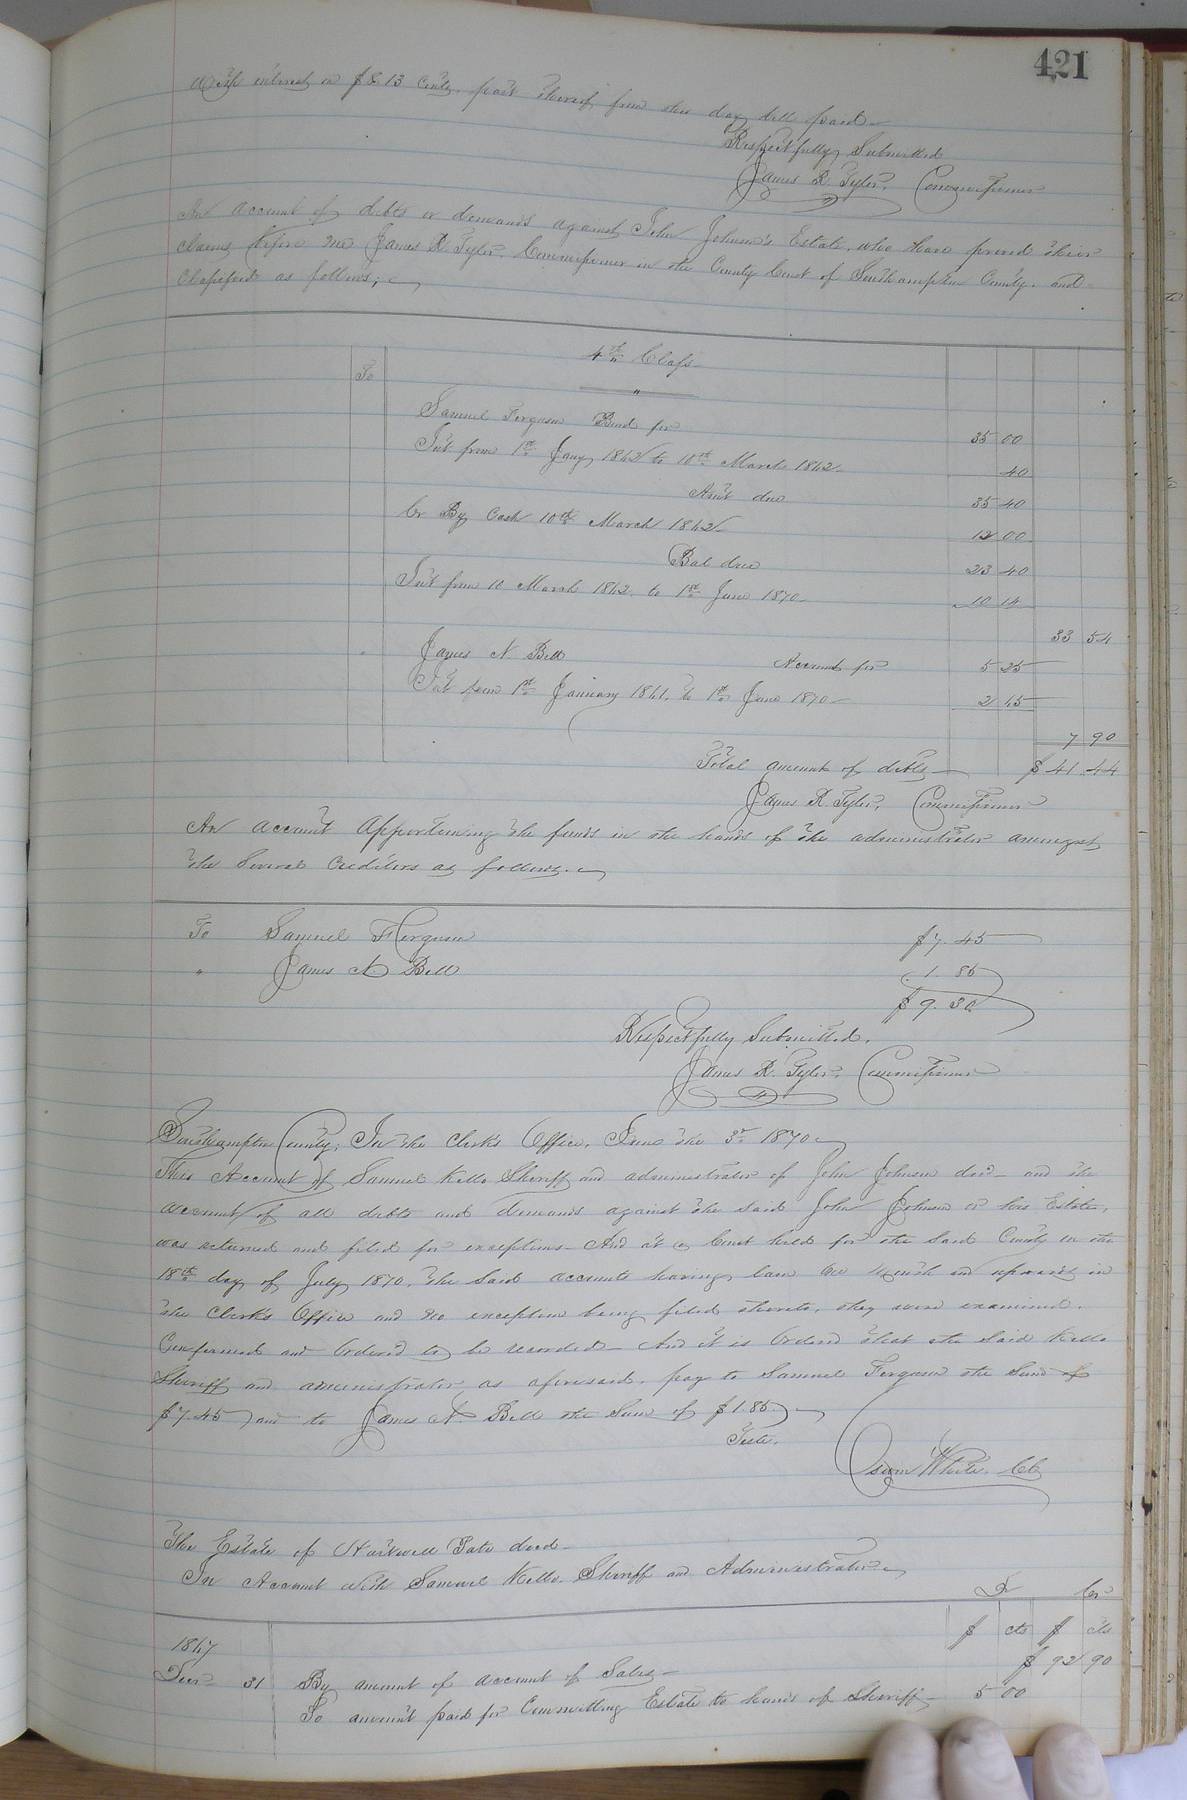 421
With interest on $8.13 Cents, part thereof from this day till paid
Respectfully Submitted
James R. Tyler, Commissioner
An account of debts or demands against John Johnson's Estate, who have proved their
claims before me James R. Tyler, Commissioner in the County Court of Southampton County, and
Classified as follows;
4th Class
To
Samuel Ferguson Bond for 35 00
Int from 1st Jany 1842 to 10th March 1842 40
Am't due 35 40
Cr By Cash 10th March 1842 12 00
Bal due 23 40
Int from 10 March 1842 to 1st June 1870 10 14
33 54
" James N. Bell Account for 5 25
Int from 1st January 1861 to 1st June 1870 2 65
7 90
Total amount of debts $ 41.44
James R. Tyler, Commissioner
An account Apportioning the funds in the hands of the administrator amongst
the Several Creditors as follows.
To Samuel Ferguson $7.45
" James N. Bell 1.85
$9.30
Respectfully Submitted,
James R. Tyler, Commissioner
Southampton County; In the Clerk's Office, June the 3rd 1870
This Account of Samuel Kello Sheriff and administrator of John Johnson decd and the
account of all debts and demands against the said John Johnson or his Estate,
was returned and filed for exceptions And at a Court held for the said County on the
18th day of July 1870, the said accounts having laid one month and upwards in
the Clerk's Office and no exception being filed thereto, they were examined,
Confirmed and Ordered to be recorded And it is Ordered that the said Kello
Sheriff and administrator as aforesaid, pay to Samuel Ferguson the Sum of
$7.45 and to James N Bell the Sum of $1.85
Teste,
White, Clk
The Estate of Hartwell Tate decd
In Account with Samuel Kello, Sheriff and Administrator
Dr Cr
$ cts $ cts
1867
31 By amount of account of Sales $ 92 90
To amount paid for Committing Estate to hands of Sheriff 5 00